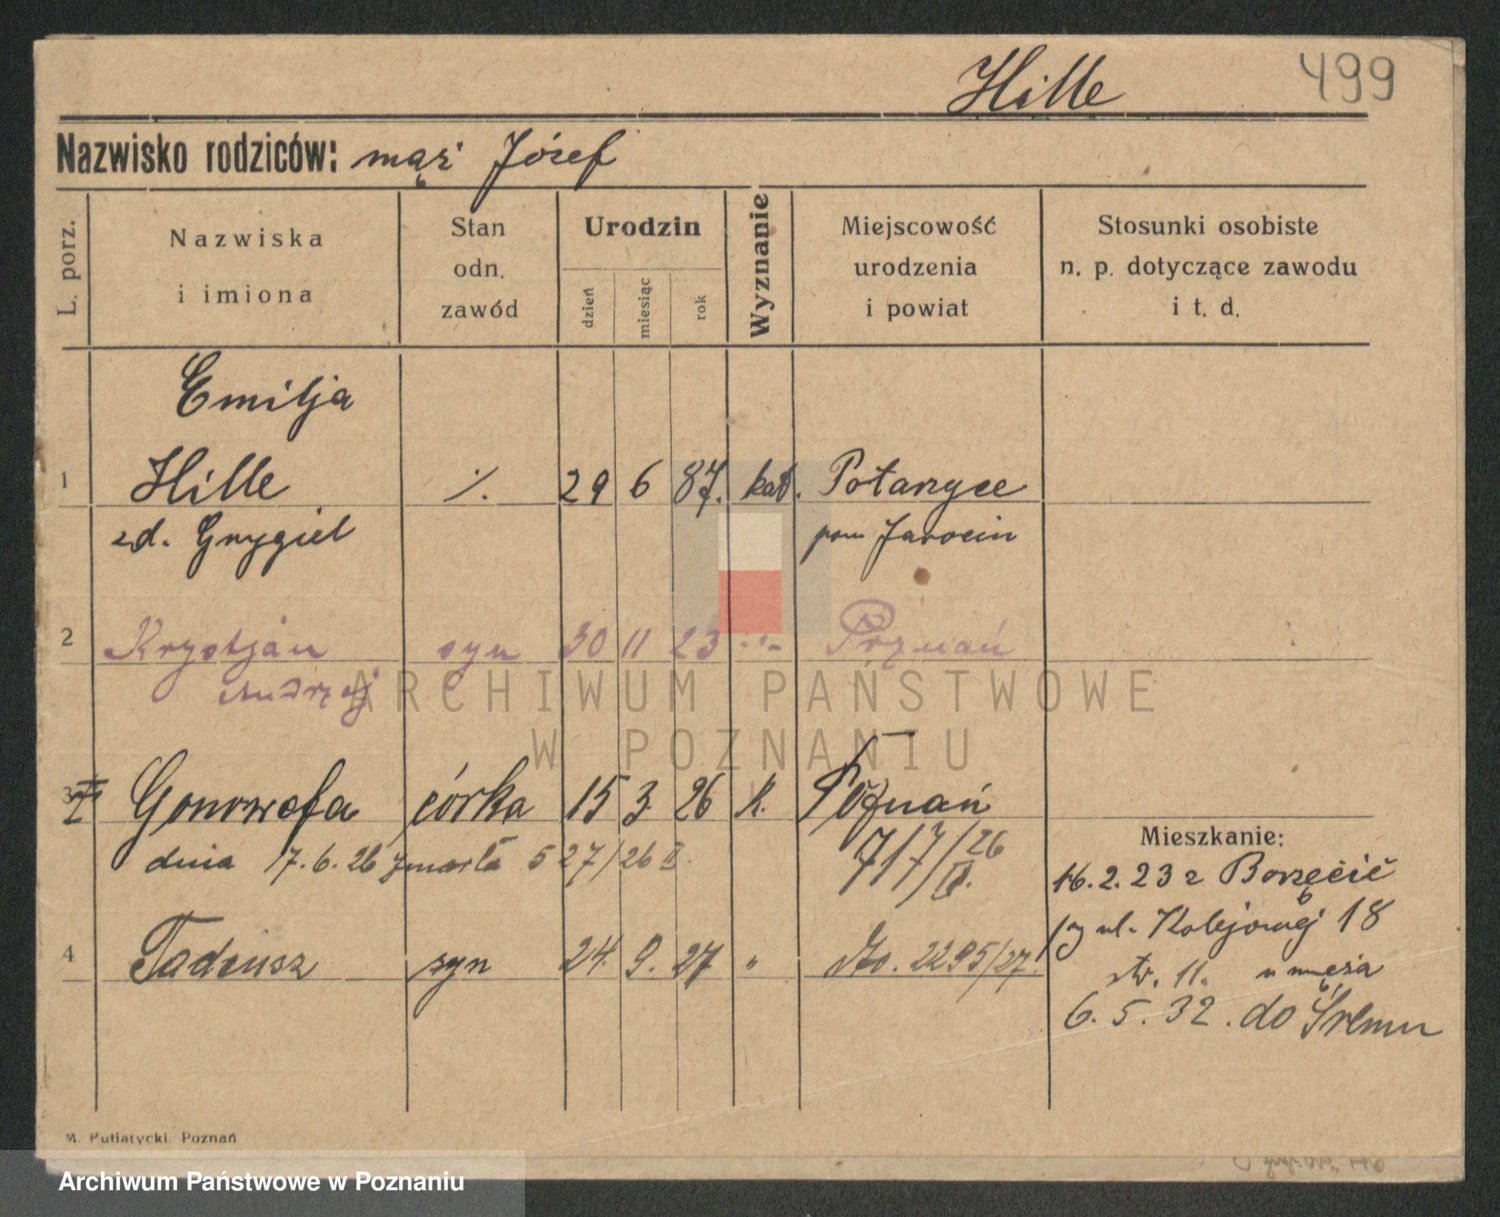 Hille 499
Nazwisko rodziców: mąż Józef
L. porz.
Nazwiska
i imiona
Stan
odn.
zawód
Urodzin
dzień
miesiąc
rok
Wyznanie
Miejscowość
urodzenia
i powiat
Stosunki osobiste
n. p. dotyczące zawodu
i t. d.
Emilja
1 Hille ./. 29 6 87. kat. Potarzyce
zd. Grygiel pow Jarocin
2 Krystjan syn 30 11 23 -"- Poznań
Andrzej
3 Genowefa córka 15 3. 26 k. Poznań
dnia 17.6.26 zmarła 527/26 II. 717/26
II.
4 Tadeusz syn 24. 9. 27 " 2295/27.
Mieszkanie:
16.2.23 z Borzęcic
ul. Kolejowej 18
11. u męża
6.5.32. do Śremu
M. Putiatycki. Poznań
ARCHIWUM PAŃSTWOWE
W POZNANIU
Archiwum Państwowe w Poznaniu